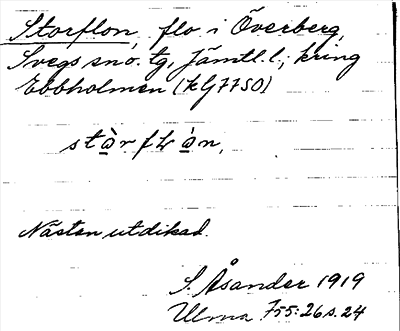 Storflon, flo i Överberg,
Svegs sno. tg, Jämtl. l.; kring
Ebbholmen (kG7750)
stàrfLàn,
Nästan utdikad.
S. Åsander 1919
Ulma 755:26 s. 24